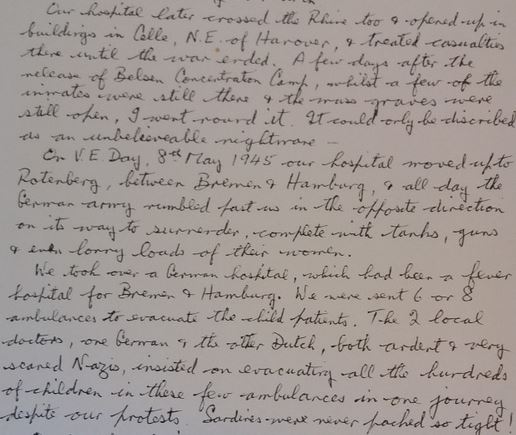 Our hospital later crossed the Rhine too & opened up in
buildings in Celle, N.E. of Hanover, & treated casualties
there until the war ended. A few days after the
release of Belsen Concentration Camp, whilst a few of the
inmates were still there & the mass graves were
still open, I went round it. It could only be discribed
as an unbelieveable nightmare —
On V.E. Day, 8th May 1945 our hospital moved up to
Rotenberg, between Bremen & Hamburg, & all day the
German army rumbled past us in the opposite direction
on its way to surrender, complete with tanks, guns
& even lorry loads of their women.
We took over a German hospital, which had been a fever
hospital for Bremen & Hamburg. We were sent 6 or 8
ambulances to evacuate the child patients. The 2 local
doctors, one German & the other Dutch, both ardent & very
scared Nazis, insisted on evacuating all the hundreds
of children in these few ambulances in one journey
despite our protests. Sardines were never packed so tight!